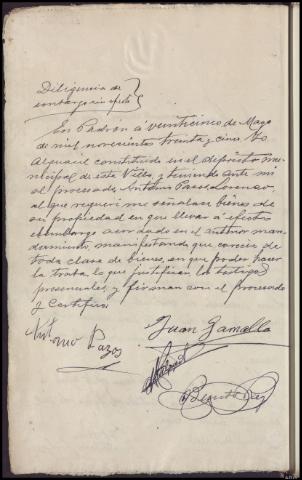 Diligencia de
embargo sin efecto
En Padrón á veinticinco de Mayo
de mil novecientos treinta y cinco Yo
Alguacil constituido en el depósito mu-
nicipal de esta Villa y teniendo ante mi
al procesado Antonio Pazos Lorenzo,
al que requerí me señalase bienes de
su propiedad en que llevar á efecto
el embargo acordado en el anterior man-
damiento, manifestando que carecia de
toda clase de bienes, en que poder hacer
la traba, lo que justifican los testigos
presenciales y firman con el procesado
y Certifico
Antonio Pazos
Juan Gamallo
Benito